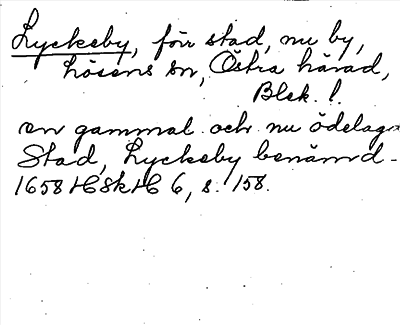 Lyckeby, förr stad, nu by,
Lösens sn, Östra härad,
Blek. l.
en gammal och nu ödelagd
Stad, Lyckeby benämd -
1658 HSkH 6, s. 158.